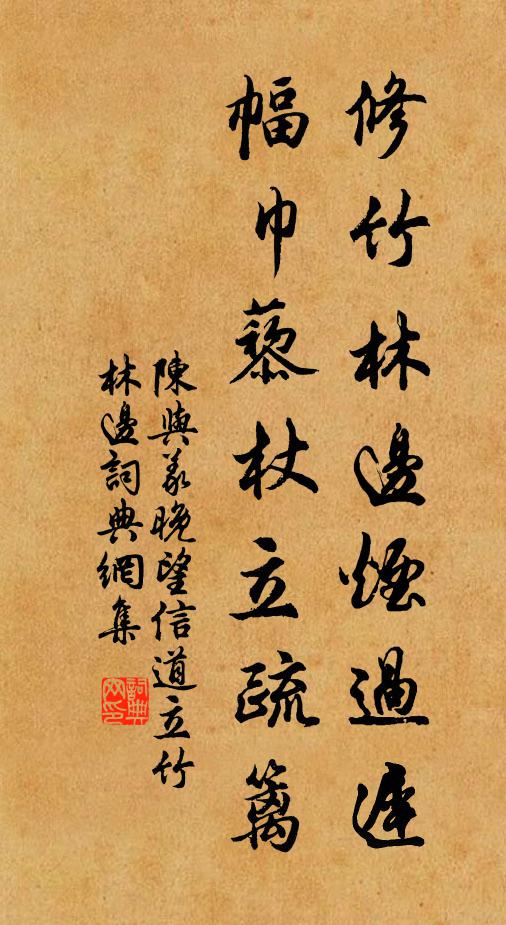 修竹林邊煙過遲
幅巾藜杖立疏籬
陳與義晚望信道立竹
林邊詞典網集
詞典網印